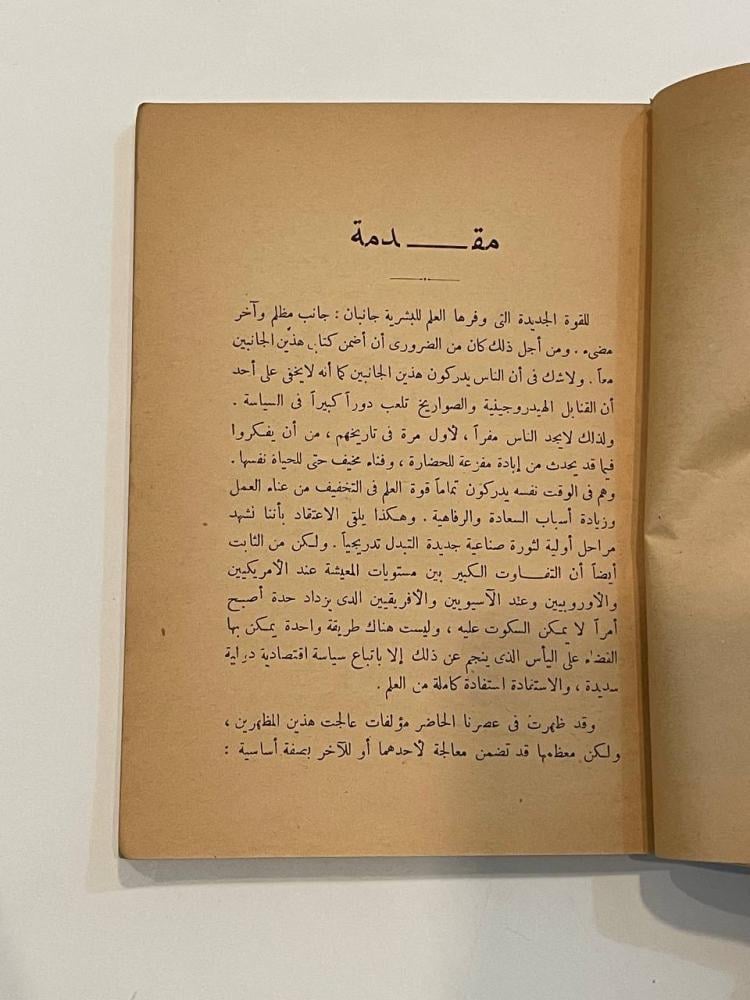 مقـــدمة
للقوة الجديدة التى وفرها العلم للبشرية جانبان : جانب مظلم وآخر
مضىء . ومن أجل ذلك كان من الضرورى أن أضمن كتابى هذين الجانبين
معاً . ولاشك فى أن الناس يدركون هذين الجانبين كما أنه لايخفى على أحد
أن القنابل الهيدروجينية والصواريخ تلعب دوراً كبيراً فى السياسة .
ولذلك لايجد الناس مفراً ، لأول مرة فى تاريخهم ، من أن يفكروا
فيما قد يحدث من إبادة مفزعة للحضارة ، وفناء مخيف حتى للحياة نفسها .
وهم فى الوقت نفسه يدركون تماماً قوة العلم فى التخفيف من عناء العمل
وزيادة أسباب السعادة والرفاهية . وهكذا يلقى الاعتقاد بأننا نشهد
مراحل أولية لثورة صناعية جديدة التبدل تدريجياً . ولكن من الثابت
أيضاً أن التفـاوت الكبير بين مستويات المعيشة عند الأمريكيين
والاوروبيين وعند الآسيويين والافريقيين الذى يزداد حدة أصبح
أمراً لا يمكن السكوت عليه ، وليست هناك طريقة واحدة يمكن بها
القضاء على اليأس الذى ينجم عن ذلك إلا باتباع سياسة اقتصادية دولية
سديدة ، والاستفادة استفادة كاملة من العلم .
وقد ظهرت فى عصرنا الحاضر مؤلفات عالجت هذين المظهرين ،
ولكن معظمها قد تضمن معالجة لأحدهما أو للآخر بصفة أساسية :